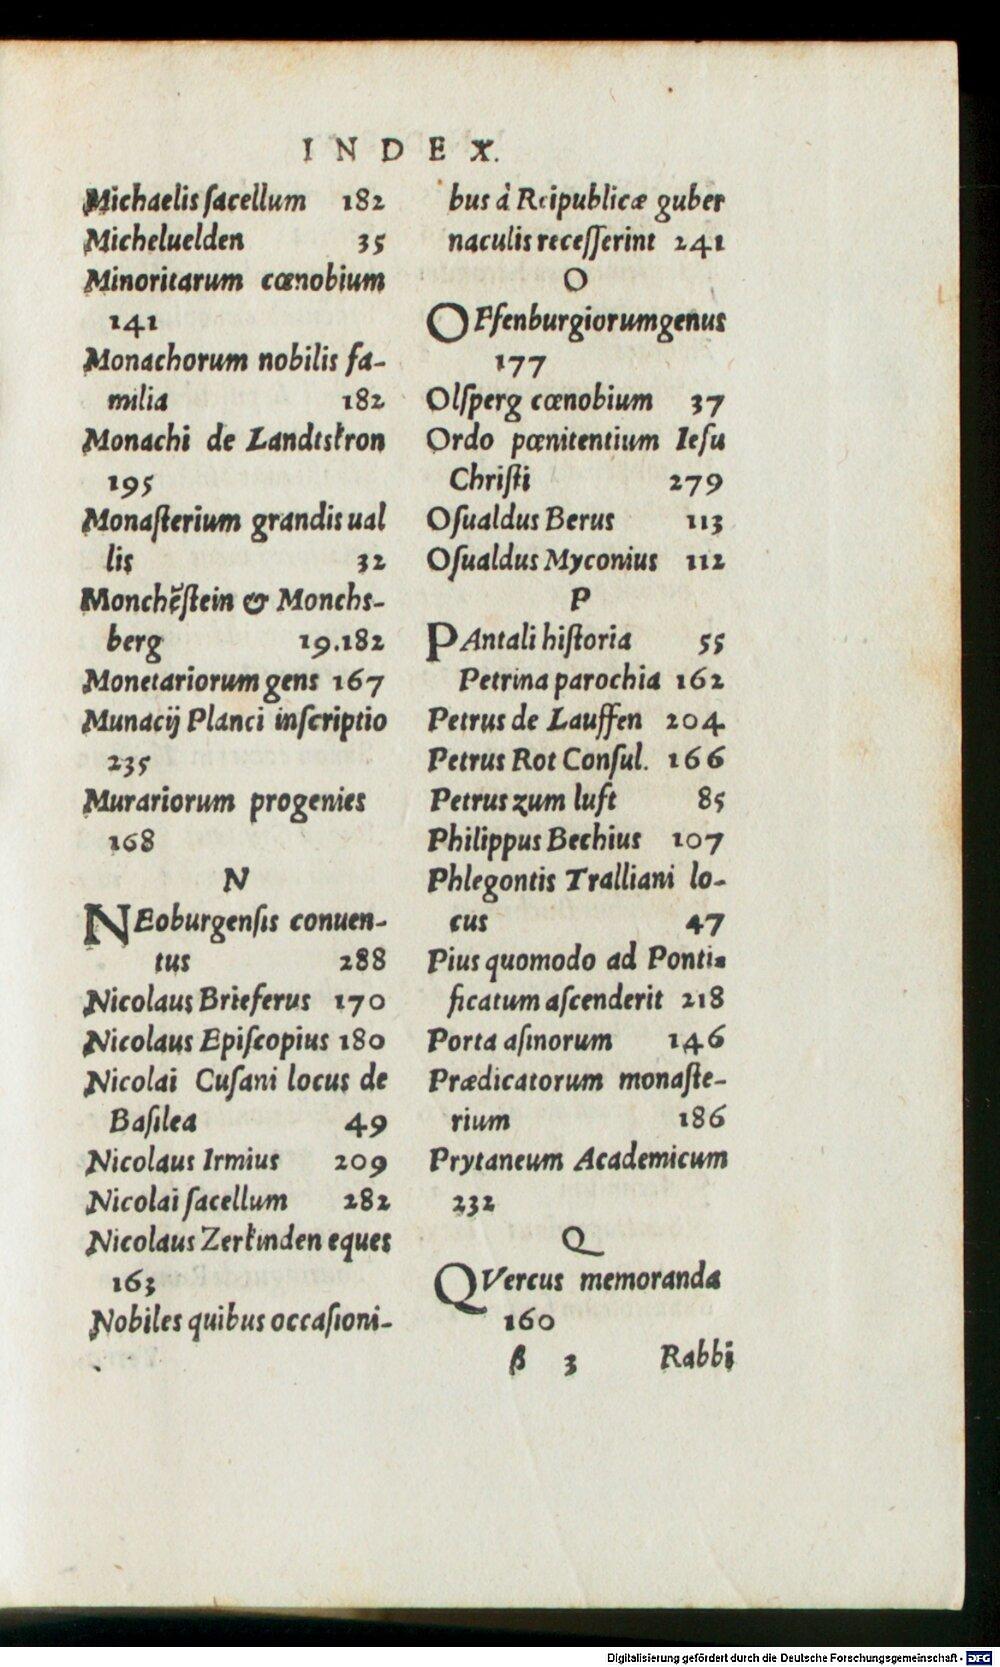 INDEX.
Michaelis ſacellum 182
Micheluelden 35
Minoritarum cœnobium
141
Monachorum nobilis fa-
milia 182
Monachi de Landtskron
195
Monaſterium grandis ual
lis 32
Monchẽſtein & Monchs-
berg 19.182
Monetariorum gens 167
Munacij Planci inſcriptio
235
Murariorum progenies
168
N
NEoburgenſis conuen-
tus 288
Nicolaus Brieferus 170
Nicolaus Epiſcopius 180
Nicolai Cuſani locus de
Baſilea 49
Nicolaus Irmius 209
Nicolai ſacellum 282
Nicolaus Zerkinden eques
163
Nobiles quibus occaſioni-
bus à Reipublicæ guber
naculis receſſerint 241
O
OFfenburgiorum genus
177
Olſperg cœnobium 37
Ordo pœnitentium Ieſu
Chriſti 279
Oſualdus Berus 113
Oſualdus Myconius 112
P
PAntali hiſtoria 55
Petrina parochia 162
Petrus de Lauffen 204
Petrus Rot Conſul. 166
Petrus zum luft 85
Philippus Bechius 107
Phlegontis Tralliani lo-
cus 47
Pius quomodo ad Ponti-
ficatum aſcenderit 218
Porta aſinorum 146
Prædicatorum monaſte-
rium 186
Prytaneum Academicum
232
Q
QVercus memoranda
160
ß 3 Rabbi
Digitalisierung gefördert durch die Deutsche Forschungsgemeinschaft - DFG